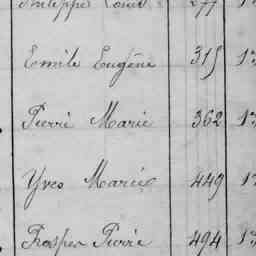 Philippe Louis 277 1
Emile Eugène 315 13
Pierre Marie 362 13
Yves Marie 449 1
Prosper Pierre 494 13